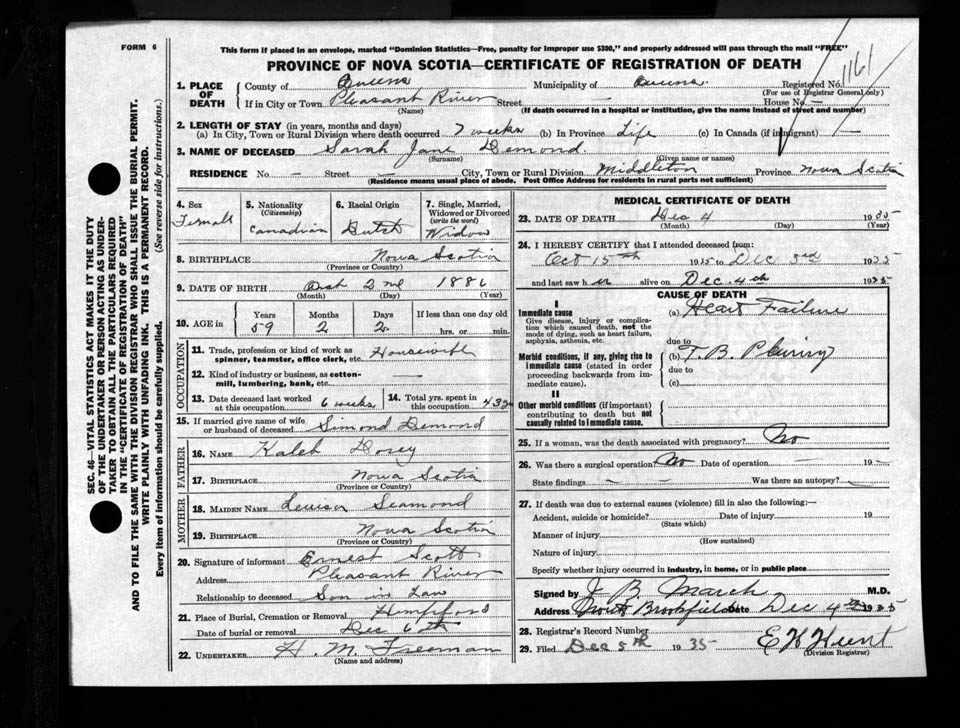 FORM 6
This form if placed in an envelope, marked "Dominion Statistics—Free, penalty for improper use $300," and properly addressed will pass through the mail "FREE"
PROVINCE OF NOVA SCOTIA—CERTIFICATE OF REGISTRATION OF DEATH
1161
1. PLACE OF DEATH
County of Queens Municipality of Queens. Registered No.
(For use of Registrar General only)
If in City or Town Pleasant River Street — House No. —
(Name) (If death occurred in a hospital or institution, give the name instead of street and number)
2. LENGTH OF STAY (in years, months and days)
(a) In City, Town or Rural Division where death occurred 7 weeks (b) In Province Life (c) In Canada (if immigrant) —
3. NAME OF DECEASED Sarah Jane Demond.
(Surname) (Given name or names)
RESIDENCE No. — Street — City, Town or Rural Division Middleton Province Nova Scotia
(Residence means usual place of abode. Post Office Address for residents in rural parts not sufficient)
4. Sex Femall
5. Nationality (Citizenship) Canadian
6. Racial Origin Dutch
7. Single, Married, Widowed or Divorced (write the word) Widow
8. BIRTHPLACE Nova Scotia
(Province or Country)
9. DATE OF BIRTH 2nd 1886
(Month) (Day) (Year)
10. AGE in Years Months Days If less than one day old
59 2 2 hrs. or min.
OCCUPATION
11. Trade, profession or kind of work as spinner, teamster, office clerk, etc. Housewife
12. Kind of industry or business, as cotton-mill, lumbering, bank, etc. —
13. Date deceased last worked at this occupation 6 weeks
14. Total yrs. spent in this occupation 43
15. If married give name of wife or husband of deceased Simond Demond
FATHER
16. NAME Kaleb Dorey
17. BIRTHPLACE Nova Scotia
(Province or Country)
MOTHER
18. MAIDEN NAME Seamond
19. BIRTHPLACE Nova Scotia
(Province or Country)
20. Signature of informant Ernest Scott
Address Pleasant River
Relationship to deceased Son in Law
21. Place of Burial, Cremation or Removal
Date of burial or removal Dec 6th
22. UNDERTAKER H. M. Freeman
(Name and address)
MEDICAL CERTIFICATE OF DEATH
23. DATE OF DEATH Dec 4 1935
(Month) (Day) (Year)
24. I HEREBY CERTIFY that I attended deceased from:
Oct 15th 1935 to Dec 3rd 1935
and last saw her alive on Dec. 4th 1935
CAUSE OF DEATH
I
Immediate cause
Give disease, injury or complication which caused death, not the mode of dying, such as heart failure, asphyxia, asthenia, etc.
(a) Heart Failure
due to
Morbid conditions, if any, giving rise to immediate cause (stated in order proceeding backwards from immediate cause).
(b) T.B. Pleurisy
due to
(c)
II
Other morbid conditions (if important) contributing to death but not causally related to immediate cause.
25. If a woman, was the death associated with pregnancy? No
26. Was there a surgical operation? No Date of operation — 19 —
State findings — — Was there an autopsy? —
27. If death was due to external causes (violence) fill in also the following:—
Accident, suicide or homicide? Date of injury 19
(State which)
Manner of injury
(How sustained)
Nature of injury
Specify whether injury occurred in industry, in home, or in public place
Signed by J B March M.D.
Address South Brookfield Date Dec 4th 1935
28. Registrar's Record Number
29. Filed Dec 5th 1935 E H Hunt
(Division Registrar)
SEC. 46—VITAL STATISTICS ACT MAKES IT THE DUTY
OF THE UNDERTAKER OR PERSON ACTING AS UNDER-
TAKER TO OBTAIN ALL THE PARTICULARS REQUIRED
IN THE "CERTIFICATE OF REGISTRATION OF DEATH"
AND TO FILE THE SAME WITH THE DIVISION REGISTRAR WHO SHALL ISSUE THE BURIAL PERMIT.
WRITE PLAINLY WITH UNFADING INK. THIS IS A PERMANENT RECORD.
Every item of information should be carefully supplied. (See reverse side for instructions.)